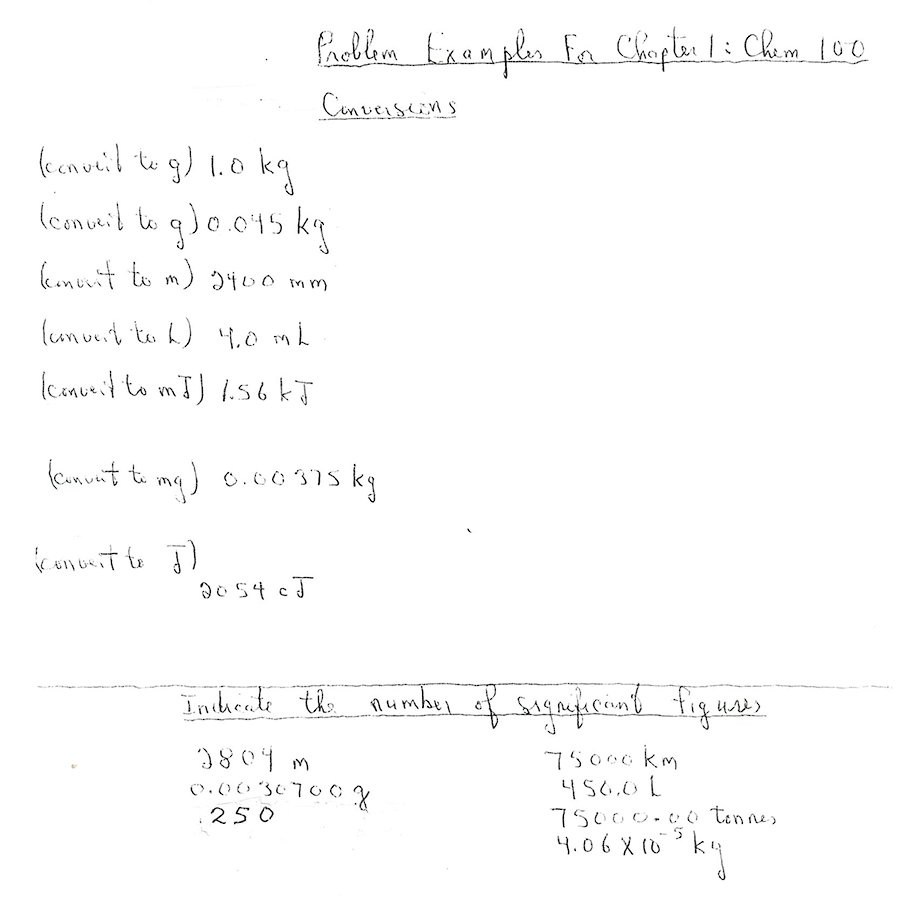 Problem Examples For Chapter 1: Chem 100
Conversions
(convert to g) 1.0 kg
(convert to g) 0.045 kg
(convert to m) 2400 mm
(convert to L) 4.0 mL
(convert to mJ) 1.56 kJ
(convert to mg) 0.00375 kg
(convert to J)
2054 cJ
Indicate the number of significant figures
2804 m
0.0030700 g
.250
75000 km
450.0 L
75000.00 tonnes
4.06 X 10⁻⁵ kg